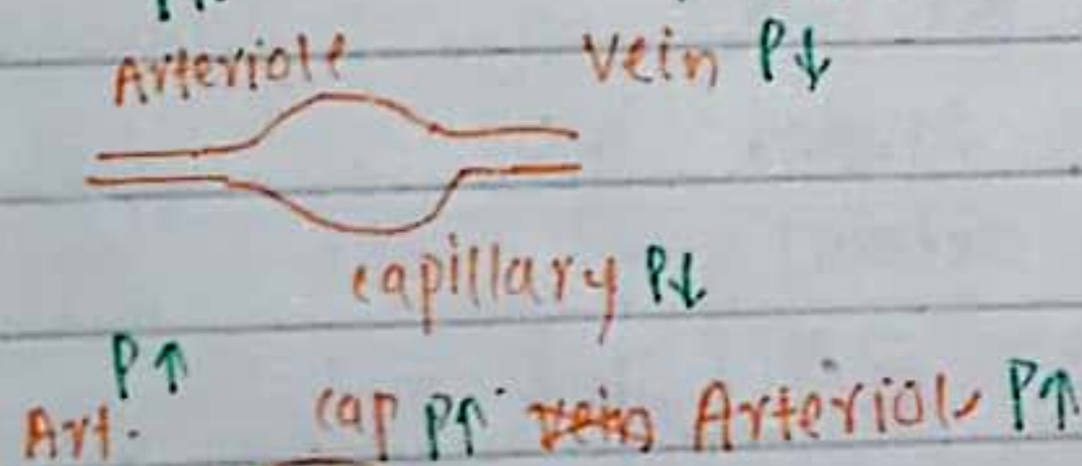 Arteriole Vein P↓
capillary P↓
P↑
Art. cap P↑ Arteriole P↑